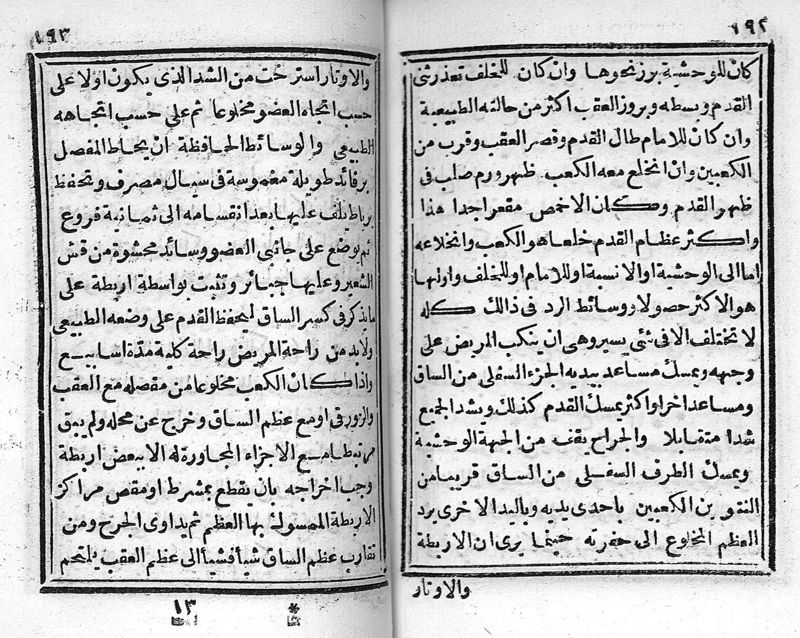 ١٩٢
كان للوحشية برز نحوها وان كان للخلف تعذر ثنى
القدم وبسطه وبروز العقب اكثر من حالته الطبيعية
وان كان للامام طال القدم وقصر العقب وقرب من
الكعبين وان انخلع معه الكعب ظهر ورم صلب فى
ظهر القدم وكان الاخمص مقعرا جدا هذا
واكثر عظام القدم خلعا هو الكعب وانخلاعه
اما الى الوحشية او الانسية او للامام او للخلف واولها
هو الاكثر حصولا ووسائط الرد فى ذالك كله
لا تختلف الا فى شئ يسير وهى ان ينكب المريض على
وجهه ويمسك مساعد بيديه الجزء السفلى من الساق
ومساعد اخر او اكثر يمسك القدم كذلك ويشد الجميع
شدا متقابلا والجراح يقف من الجهة الوحشية
ويمسك الطرف السفلى من الساق قريبا من
النتوين الكعبيين باحدى يديه وباليد الاخرى يرد
العظم المخلوع الى حفرته حينما يرى ان الاربطة
والاوتار
١٩٣
والاوتار استرخت من الشد الذى يكون اولا على
حسب اتجاه العضو مخلوعا ثم على حسب اتجاهه
الطبيعى والوسائط الحافظة ان يحاط المفصل
برفائد طويلة مغموسة فى سيال مصرف وتحفظ
برباط يلف عليها بعد انقسامه الى ثمانية فروع
ثم يوضع على جانبى العضو وسائد محشوة من قش
الشعير وعليها جبائر وتثبت بواسطة اربطة على
ما يذكر فى كسر الساق ليحفظ القدم على وضعه الطبيعى
ولا بد من راحة المريض راحة كلية مدة اسابيع
واذا كان الكعب مخلوعا من مفصله مع العقب
والزورقى او مع عظم الساق وخرج عن محله ولم يبق
مرتبطا مع الاجزاء المجاورة له الا ببعض اربطة
وجب اخراجه بان يقطع بمشرط او مقص مراكز
الاربطة الممسوك بها العظم ثم يداوى الجرح ومن
تقارب عظم الساق شيأ فشيأ الى عظم العقب يلتحم
١٣